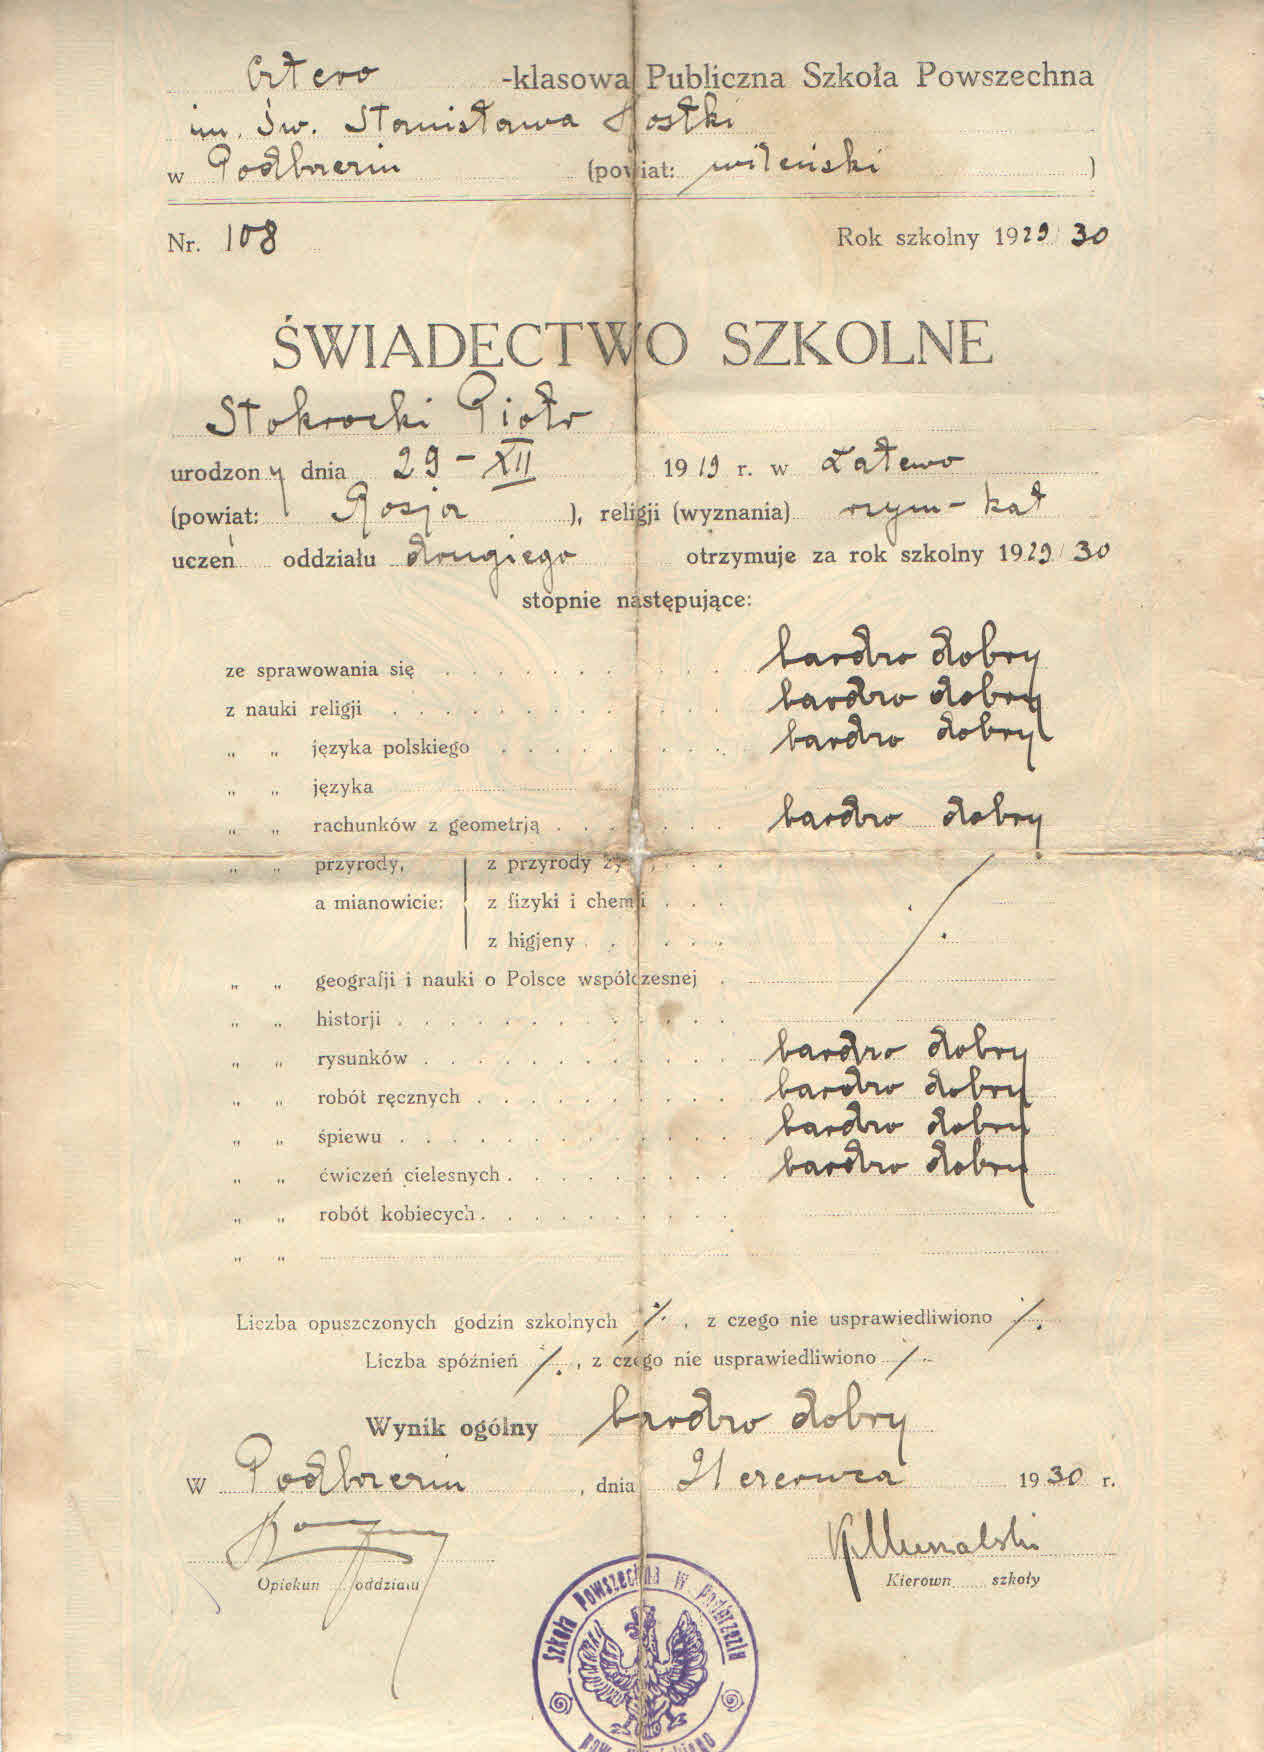 Cztero -klasowa Publiczna Szkoła Powszechna
im. Św. Stanisława Kostki
w Podbrzeziu (powiat: wileński )
Nr. 108 Rok szkolny 1929/30
ŚWIADECTWO SZKOLNE
Stokrocki Piotr
urodzony dnia 29-XII 1919 r. w Łatewo
(powiat: Rosja ), religji (wyznania) rzym-kat
uczeń oddziału drugiego otrzymuje za rok szkolny 1929/30
stopnie następujące:
ze sprawowania się . . . . . . . . . . . bardzo dobry
z nauki religji . . . . . . . . . . . . . bardzo dobry
„ „ języka polskiego . . . . . . . . . bardzo dobry
„ „ języka
„ „ rachunków z geometrją . . . . . . . bardzo dobry
„ „ przyrody, z przyrody . . .
a mianowicie: z fizyki i chemji . . .
z higjeny . . . . . .
„ „ geografji i nauki o Polsce współczesnej .
„ „ historji . . . . . . . . . . . . .
„ „ rysunków . . . . . . . . . . . . bardzo dobry
„ „ robót ręcznych . . . . . . . . . . bardzo dobry
„ „ śpiewu . . . . . . . . . . . . . bardzo dobry
„ „ ćwiczeń cielesnych . . . . . . . . . bardzo dobry
„ „ robót kobiecych . . . . . . . . . .
„ „
Liczba opuszczonych godzin szkolnych ./. , z czego nie usprawiedliwiono ./.
Liczba spóźnień ./. , z czego nie usprawiedliwiono ./.
Wynik ogólny bardzo dobry
W Podbrzeziu , dnia 21 czerwca 1930 r.
Opiekun oddziału Kierown szkoły
Szkoła Powszechna w Podbrzeziu